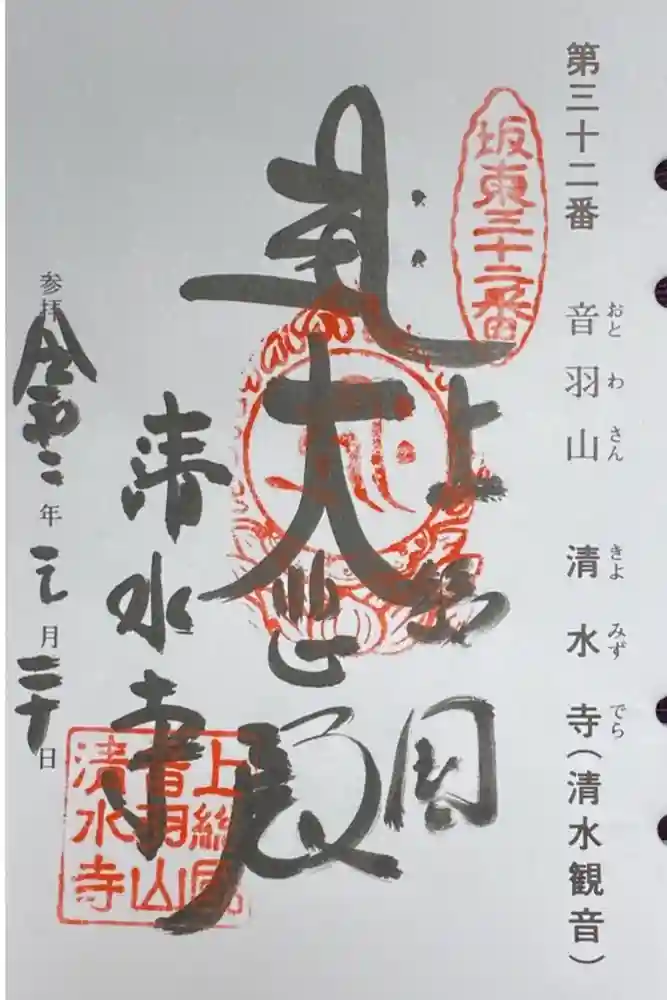 第三十二番 音羽山 清水寺(清水観音)
おとわさん きよみずでら
坂東三十二番
上総国
大悲殿
清水寺
上總國
音羽山
清水寺
参拝 令和二年 月 日